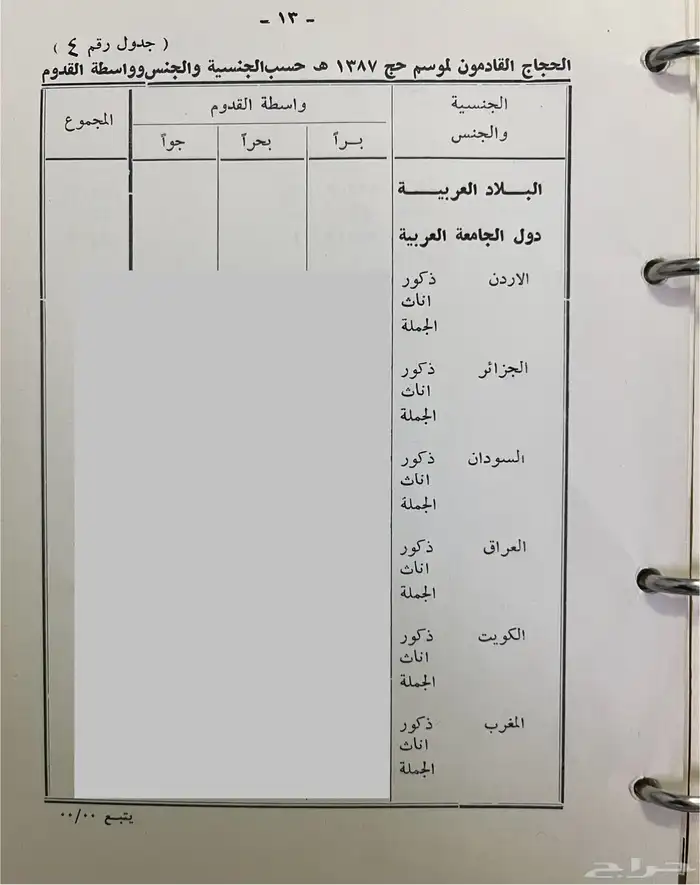 - ١٣ -
( جدول رقم ٤ )
الحجاج القادمون لموسم حج ١٣٨٧ هـ حسب الجنسية والجنس وواسطة القدوم
الجنسية والجنس
واسطة القدوم
المجموع
بـراً
بحراً
جواً
البـــلاد العربيـــــة
دول الجامعة العربية
الاردن ذكور
اناث
الجملة
الجزائر ذكور
اناث
الجملة
السودان ذكور
اناث
الجملة
العراق ذكور
اناث
الجملة
الكويت ذكور
اناث
الجملة
المغرب ذكور
اناث
الجملة
يتبع ٠٠/٠٠
حراج